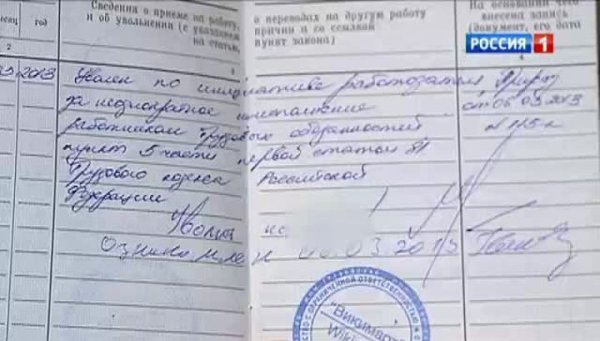 Сведения о приеме на работу,
и об увольнении (с указанием
на статью,
о переводах на другую работу
причин и со ссылкой
пункт закона)
На основании чего
внесена запись
(документ, его дата
РОССИЯ 1
месяц
год
2
2013
по инициативе работодателя Приказ
за неоднократное неисполнение от 06 03 2013
работником трудовых обязанностей
пункт 5 части первой статьи 81
Трудового кодекса Российской
Федерации
03.2013
"Викимарт"
Wiki
ОГРАНИЧЕННОЙ ОТВЕТСТВЕННОСТЬЮ